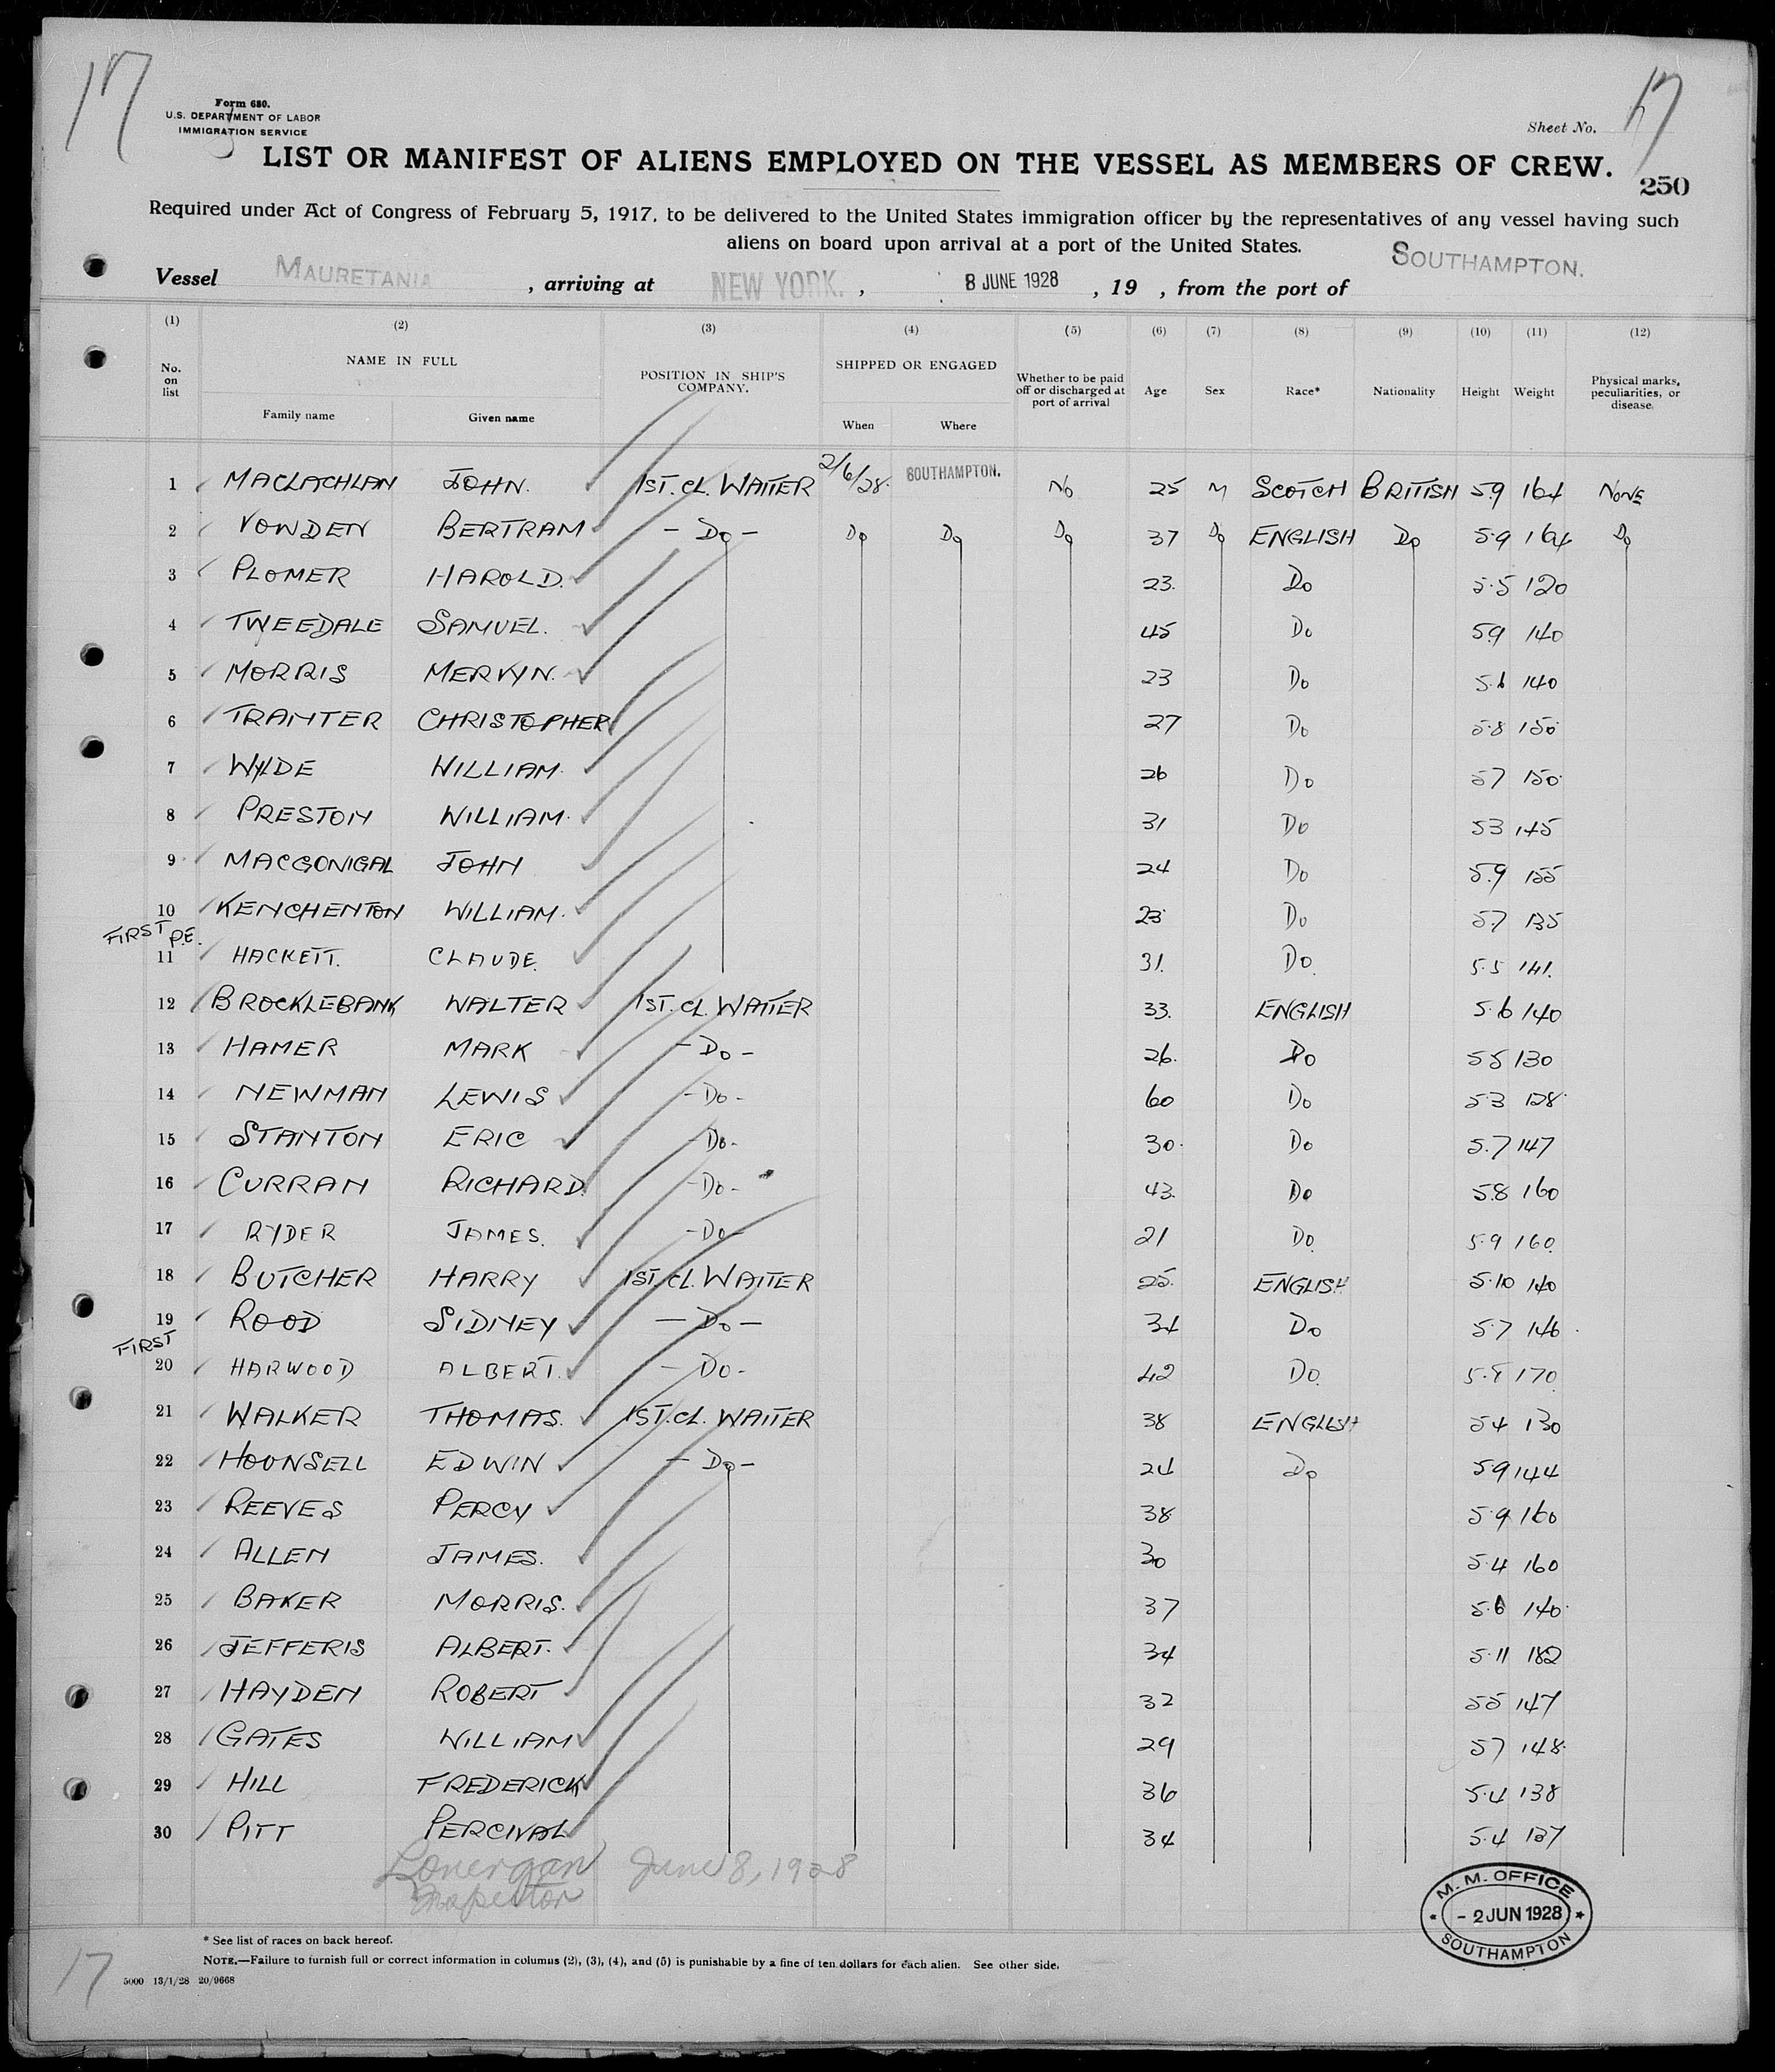 17
17
Form 680.
U.S. DEPARTMENT OF LABOR
IMMIGRATION SERVICE
Sheet No.
LIST OR MANIFEST OF ALIENS EMPLOYED ON THE VESSEL AS MEMBERS OF CREW.
250
Required under Act of Congress of February 5, 1917, to be delivered to the United States immigration officer by the representatives of any vessel having such
aliens on board upon arrival at a port of the United States.
Vessel MAURETANIA , arriving at NEW YORK. , 8 JUNE 1928 , 19 , from the port of SOUTHAMPTON.
(1) (2) (3) (4) (5) (6) (7) (8) (9) (10) (11) (12)
No. on list NAME IN FULL Family name Given name POSITION IN SHIP'S COMPANY. SHIPPED OR ENGAGED When Where Whether to be paid off or discharged at port of arrival Age Sex Race* Nationality Height Weight Physical marks, peculiarities, or disease
1 MACLACHLAN JOHN. 1ST. CL. WAITER 2/6/28. SOUTHAMPTON. No 25 M SCOTCH BRITISH 5.9 164 NONE
2 VOWDEN BERTRAM - Do - Do Do Do 37 Do ENGLISH Do 5.9 164 Do
3 PLOMER HAROLD. 23. Do 5.5 120
4 TWEEDALE SAMUEL. 45 Do 59 140
5 MORRIS MERVYN. 23 Do 5.6 140
6 TRANTER CHRISTOPHER 27 Do 5.8 150
7 WYLDE WILLIAM. 26 Do 57 150
8 PRESTON WILLIAM. 31 Do 53 145
9 MACGONIGAL JOHN 24 Do 5.9 155
10 KENCHENTON WILLIAM. 23 Do 57 135
FIRST P.E.
11 HACKETT. CLAUDE. 31. Do. 5.5 141.
12 BROCKLEBANK WALTER 1ST. CL. WAITER 33. ENGLISH 5.6 140
13 HAMER MARK - Do - 26. Do 55 130
14 NEWMAN LEWIS - Do - 60 Do 5.3 128
15 STANTON ERIC - Do - 30. Do 5.7 147
16 CURRAN RICHARD. - Do - 43. Do 5.8 160
17 RYDER JAMES. - Do - 21 Do. 5.9 160.
18 BUTCHER HARRY 1ST. CL. WAITER 25. ENGLISH 5.10 140
19 ROOD SIDNEY - Do - 34 Do 5.7 146
FIRST
20 HARWOOD ALBERT. - Do - 42 Do. 170
21 WALKER THOMAS. 1ST. CL. WAITER 38 ENGLISH 54 130
22 HOUNSELL EDWIN - Do - 24 Do 59 144
23 REEVES PERCY 38 5.9 160
24 ALLEN JAMES. 30 5.4 160
25 BAKER MORRIS. 37 5.6 140
26 JEFFERIS ALBERT. 34 5.11 182
27 HAYDEN ROBERT 32 55 147
28 GATES WILLIAM 29 57 148
29 HILL FREDERICK 36 5.4 138
30 PITT PERCIVAL 34 5.4 137
Lonergan June 8, 1928
Inspector
M. M. OFFICE
- 2 JUN 1928
SOUTHAMPTON
* See list of races on back hereof.
NOTE.—Failure to furnish full or correct information in columns (2), (3), (4), and (5) is punishable by a fine of ten dollars for each alien. See other side.
5000 13/1/28 20/9668
17